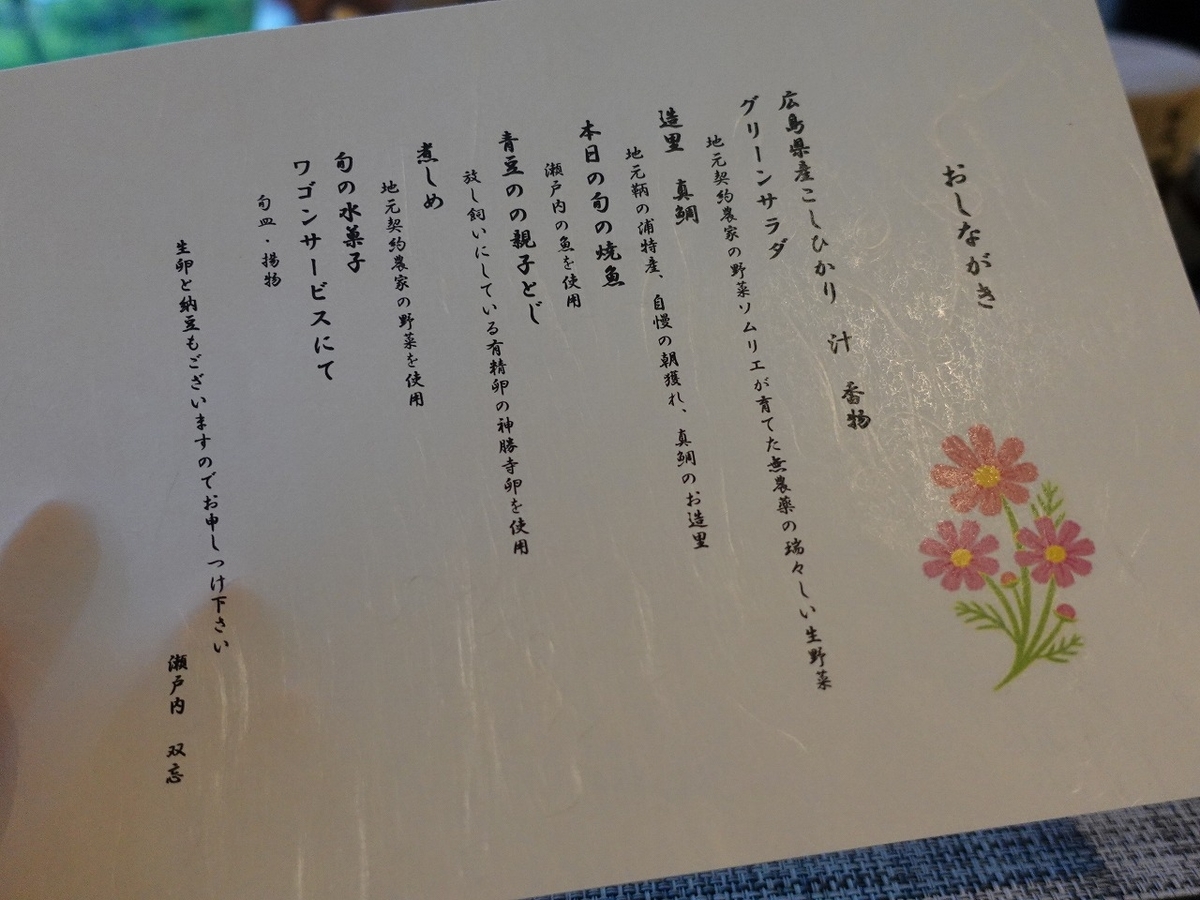 おしながき
広島県産こしひかり 汁 香物
グリーンサラダ
地元契約農家の野菜ソムリエが育てた無農薬の瑞々しい生野菜
造里 真鯛
地元鞆の浦特産、自慢の朝獲れ、真鯛のお造里
本日の旬の焼魚
瀬戸内の魚を使用
青豆のの親子とじ
放し飼いにしている有精卵の神勝寺卵を使用
煮しめ
地元契約農家の野菜を使用
旬の水菓子
ワゴンサービスにて
旬皿・揚物
生卵と納豆もございますのでお申しつけ下さい
瀬戸内 双忘